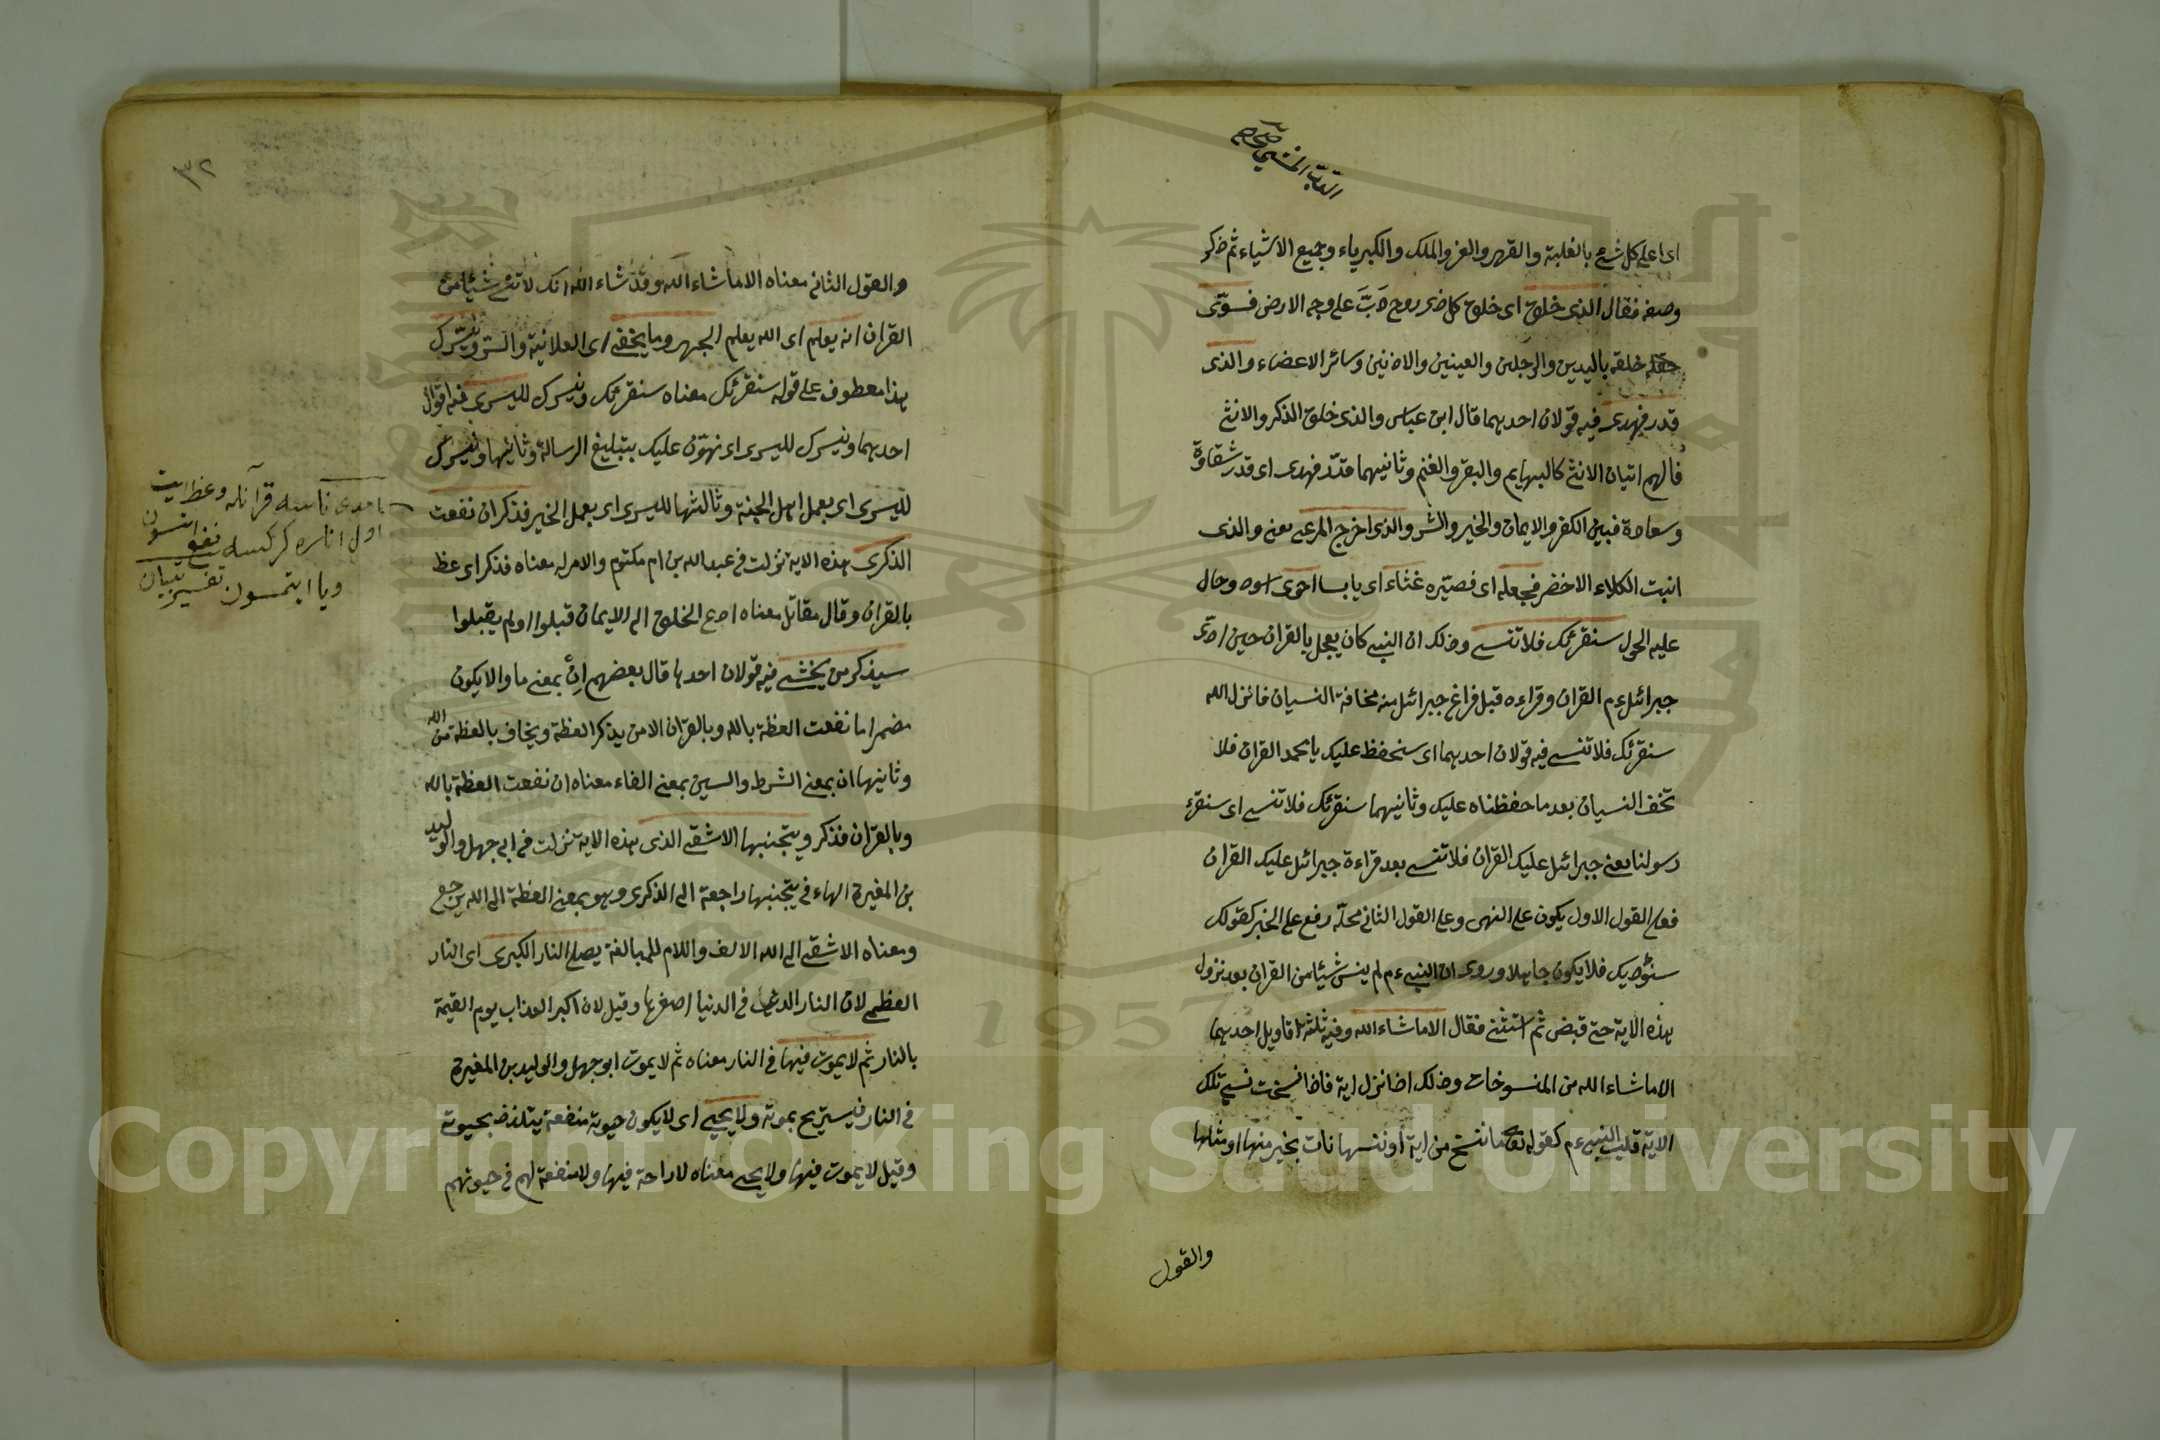 اى اعلى كل شئ بالغلبة والقهر والعز والملك والكبرياء وجميع الاشياء ثم ذكر
وصفه فقال الذى خلق اى خلق كل ذى روح دَبَّ على وجه الارض فسوّى
خلقه باليدين والرجلين والعينين والاذنين وسائر الاعضاء والذى
قدر فهدى فيه قولان احديهما قال ابن عباس والذى خلق الذكر والانثى
فالهم اتيان الانثى كالبهايم والبقر والغنم وثانيهما قدّر فهدى اى قدر شقاوة
وسعادة فبين الكفر والايمان والخير والشر والذى اخرج المرعى يعنى والذى
انبت الكلاء الاخضر فجعله اى فصيّره غثاء اى يابسا احوى اسود وحال
عليه الحول سنقرئك فلا تنسى وذلك ان النبى كان يعجل بالقران حين ادّى
جبرائل ءم القران وقراءه قبل فراغ جبرائل منه مخافة النسيان فانزل الله
سنقرئك فلا تنسى فيه قولان احديهما اى سنحفظ عليك يا محمد القران فلا
تخف النسيان بعد ما حفظناه عليك وثانيهما سنقرئك فلا تنسى اى سنقرء
رسولنا يعنى جبرائل عليك القران فلا تنسى بعد قراءة جبرائل عليك القران
فعلى القول الاول يكون على النهى وعلى القول الثانى محلّه رفع على الخبر كقولك
فلا يكون جاهلا وروى ان النبى ءم لم ينس شيئا من القران بعد نزول
هذه الاية حتى قبض ثم استثنى فقال الا ما شاء الله وفيه ثلثة اقاويل احديها
الا ما شاء الله من المنسوخات وذلك اذا نزل اية فاذا نسخت نسى تلك
الاية قلب النبى ءم كقوله تع ما ننسخ من اية او ننسها نات بخير منها او مثلها
والقول
٣٢
والقول الثانى معناه الا ما شاء الله وقد شاء الله انك لا تنسى شيئا من
القران انه يعلم اى الله يعلم الجهر وما يخفى اى العلانية والسر ونيسّرك
هذا معطوف على قوله سنقرئك معناه سنقرئك ونيسرك لليسرى فيه اقوال
احديهما ونيسرك لليسرى اى نهوّن عليك بتبليغ الرسالة وثانيها ونيسرك
لليسرى اى بعمل اهل الجنة وثالثها لليسرى اى بعمل الخير فذكر ان نفعت
الذكرى هذه الاية نزلت فى عبد الله بن ام مكتوم والامر له معناه فذكر اى عظ
بالقران وقال مقاتل معناه ادع الخلق الى الايمان قبلوا او لم يقبلوا
سيذكر من يخشى فيه قولان احدها قال بعضهم اِنْ بمعنى ما والا يكون
مضمرا ما نفعت العظة بالله وبالقران الا من يذكر العظة ويخاف بالعظة من الله
وثانيها ان بمعنى الشرط والسين بمعنى الفاء معناه ان نفعت العظة بالله
وبالقران فذكر ويتجنبها الاشقى الذى هذه الاية نزلت فى ابى جهل والوليد
بن المغيرة الهاء فى يتجنبها راجعة الى الذكرى وهو بمعنى العظة الى الله يرجع
ومعناه الاشقى الى الله الالف واللام للمبالغة يصلى النار الكبرى اى النار
العظمى لان النار فى الدنيا اصغرها وقيل لان اكبر العذاب يوم القيمة
بالنار ثم لا يموت فيها فى النار معناه ثم لا يموت ابو جهل والوليد بن المغيرة
فى النار فيستريح بموته ولا يحيى اى لا يكون حيوته منفعة يتلذذ بحيوته
وقيل لا يموت فيها ولا يحيى معناه لا راحة فيها ولا منفعة لهم فى حيوتهم
قرآنله وعظ ايت
تفسير تبيان
Copyright © King Saud University
1957